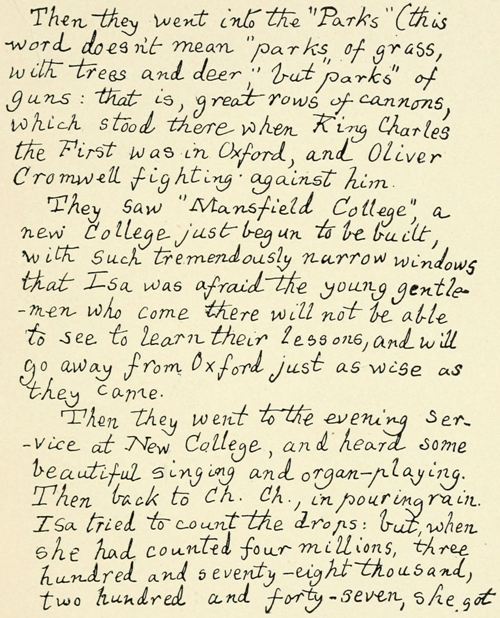 Then they went into the "Parks" (this
word doesn't mean "parks of grass,
with trees and deer," but "parks" of
guns: that is, great rows of cannons,
which stood there when King Charles
the First was in Oxford, and Oliver
Cromwell fighting against him.
They saw "Mansfield College", a
new College just begun to be built,
with such tremendously narrow windows
that Isa was afraid the young gentle-
-men who come there will not be able
to see to learn their lessons, and will
go away from Oxford just as wise as
they came.
Then they went to the evening ser-
-vice at New College, and heard some
beautiful singing and organ-playing.
Then back to Ch. Ch., in pouring rain.
Isa tried to count the drops: but, when
she had counted four millions, three
hundred and seventy-eight thousand,
two hundred and forty-seven, she got